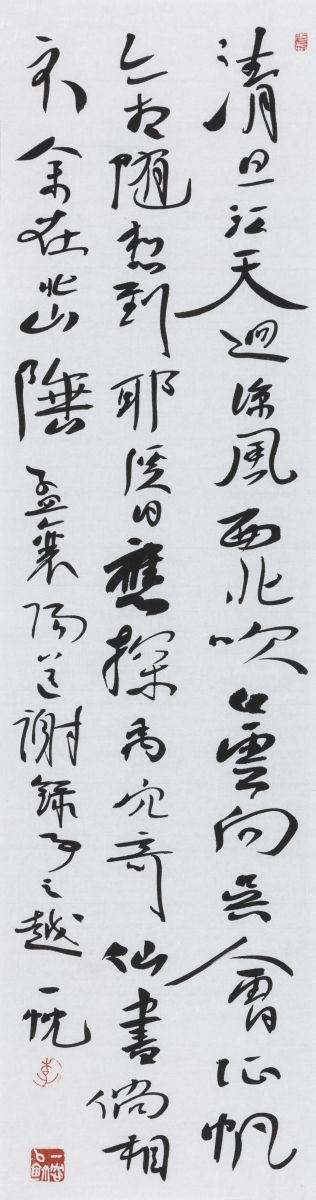 清旦江天迥涼風西北吹白雲向吳會征帆
亦相隨想到耶溪日應探禹穴奇仙書倘相
示余在此山陲 孟襄陽送謝録事之越 一忱
李